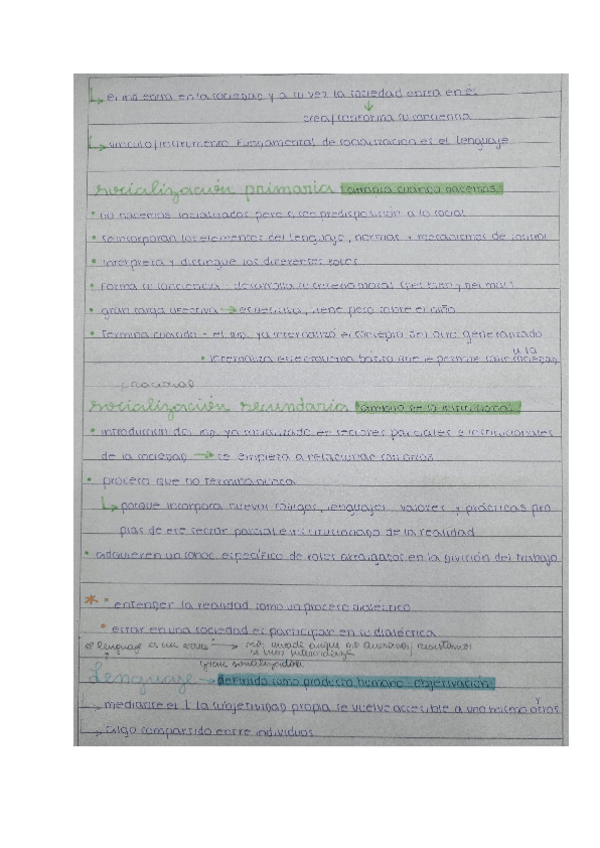 ↳ el ind entra en la sociedad y a su vez la sociedad entra en él
↓
crea/conforma su conciencia
↳ vinculo/instrumento fundamental de socialización es el lenguaje
socialización primaria comienza cuando nacemos
• no nacemos socializados pero si con predisposición a lo social
• se incorporan los elementos del lenguaje, normas y mecanismos de control
• interpreta y distingue los diferentes roles
• forma su conciencia desarrolla
• gran carga afectiva → tiene peso sobre el niño
• termina cuando - el ind. ya internalizó el concepto del otro generalizado
• internaliza que le permite
socialización secundaria
• introducción del ind. ya socializado en sectores parciales e institucionales
de la sociedad → se empieza a relacionar con otros
• proceso que no termina nunca
↳ porque incorpora nuevos códigos, lenguajes, valores y prácticas pro
pias de ese sector parcial e institucionado de la realidad
• adquieren un conoc. específico de roles arraigados en la división del trabajo
* • entender la realidad como un proceso dialéctico
• estar en una sociedad es participar en su dialéctica
el lenguaje es un →
Lenguaje → definido como producto humano - objetivación
↳ mediante el L la subjetividad propia se vuelve accesible a uno mismo y otros
↳ es algo compartido entre individuos